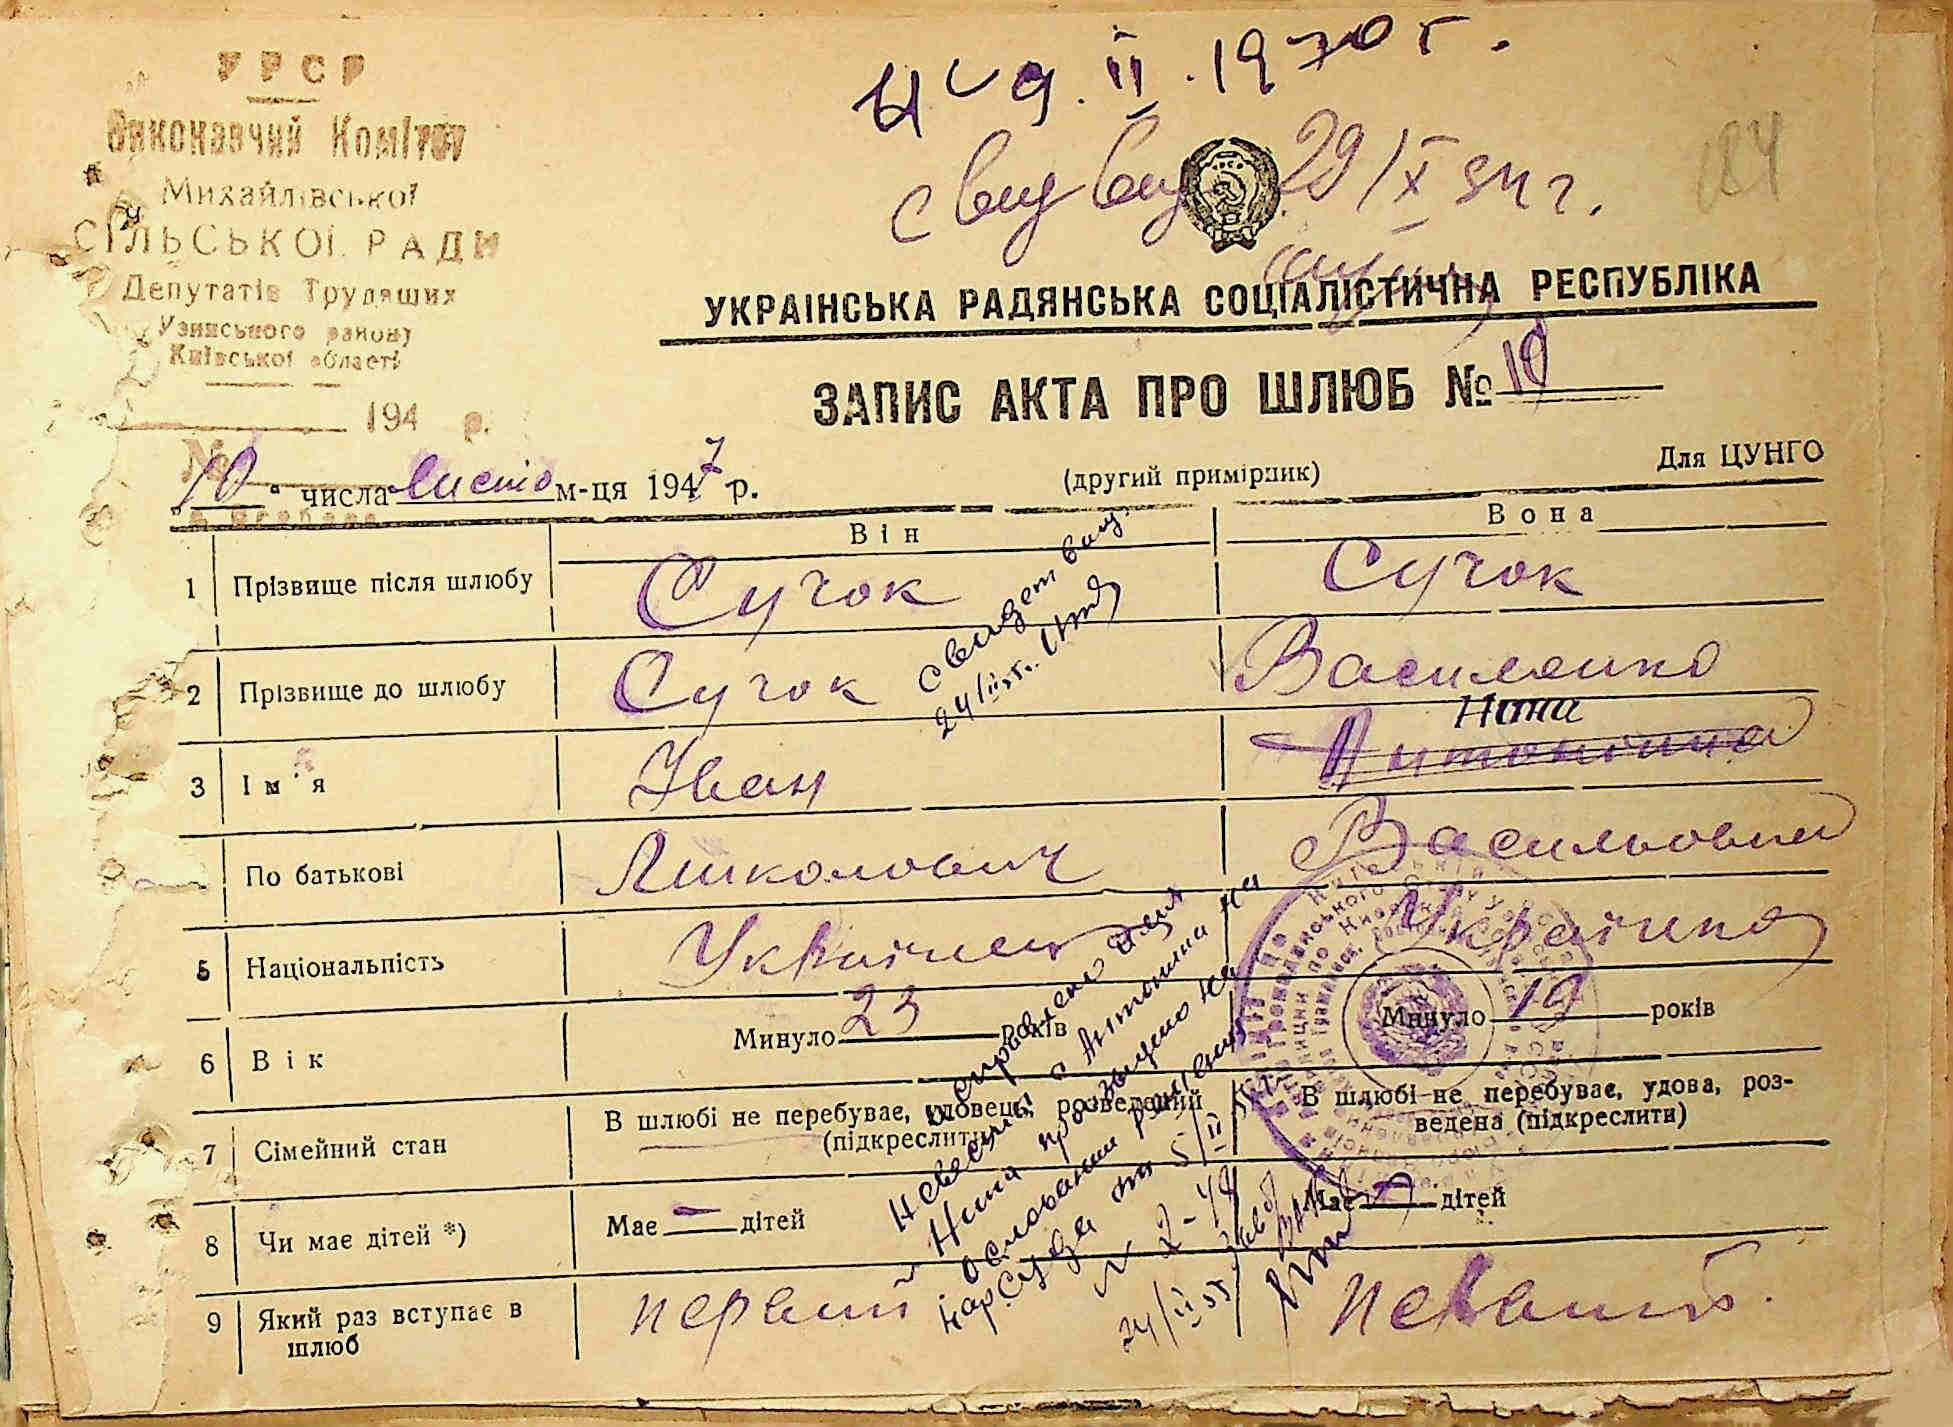 УРСР
Виконавчий Комітет
Михайлівської
СІЛЬСЬКОЇ РАДИ
Депутатів Трудящих
Узинського району
Київської області
194 р.
№
9.II.1970 г.
свид выд 29/IX 54 г.
184
УКРАІНСЬКА РАДЯНСЬКА СОЦІАЛІСТИЧНА РЕСПУБЛІКА
ЗАПИС АКТА ПРО ШЛЮБ № 10
Для ЦУНГО
„10" числа листо м-ця 1947 р.
(другий примірник)
Він Вона
1 Прізвище після шлюбу Сучок Сучок
2 Прізвище до шлюбу Сучок Василенко
свидет выд.
24/II 55г.
Нина
3 Ім'я Іван Антоніна
4 По батькові Миколович Васильовна
5 Національність Українец Українка
6 Вік Минуло 23 років Минуло 19 років
7 Сімейний стан В шлюбі не перебуває, удовець, розведений (підкреслити) В шлюбі не перебуває, удова, розведена (підкреслити)
8 Чи має дітей *) Має — дітей Має — дітей
9 Який раз вступає в шлюб первий первий
исправлено имя
невесты с Антонина на
Нина произведено на
основании решения
нарсуда от 5/II 55г.
№ 2-48
24/II 55г.